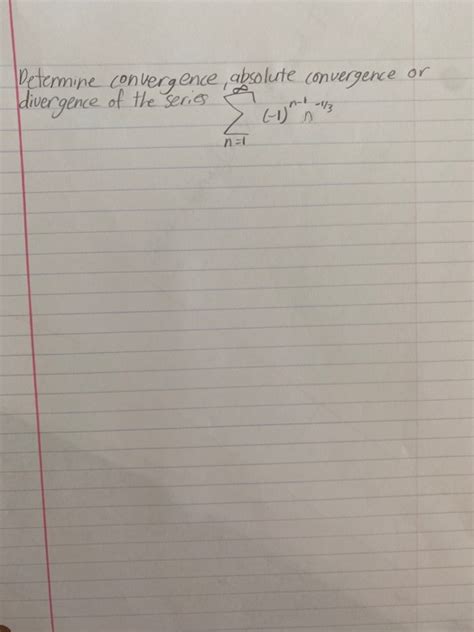 Determine convergence, absolute convergence or
divergence of the series ∞
∑ (-1)ⁿ⁻¹ n⁻¹ᐟ³
n=1